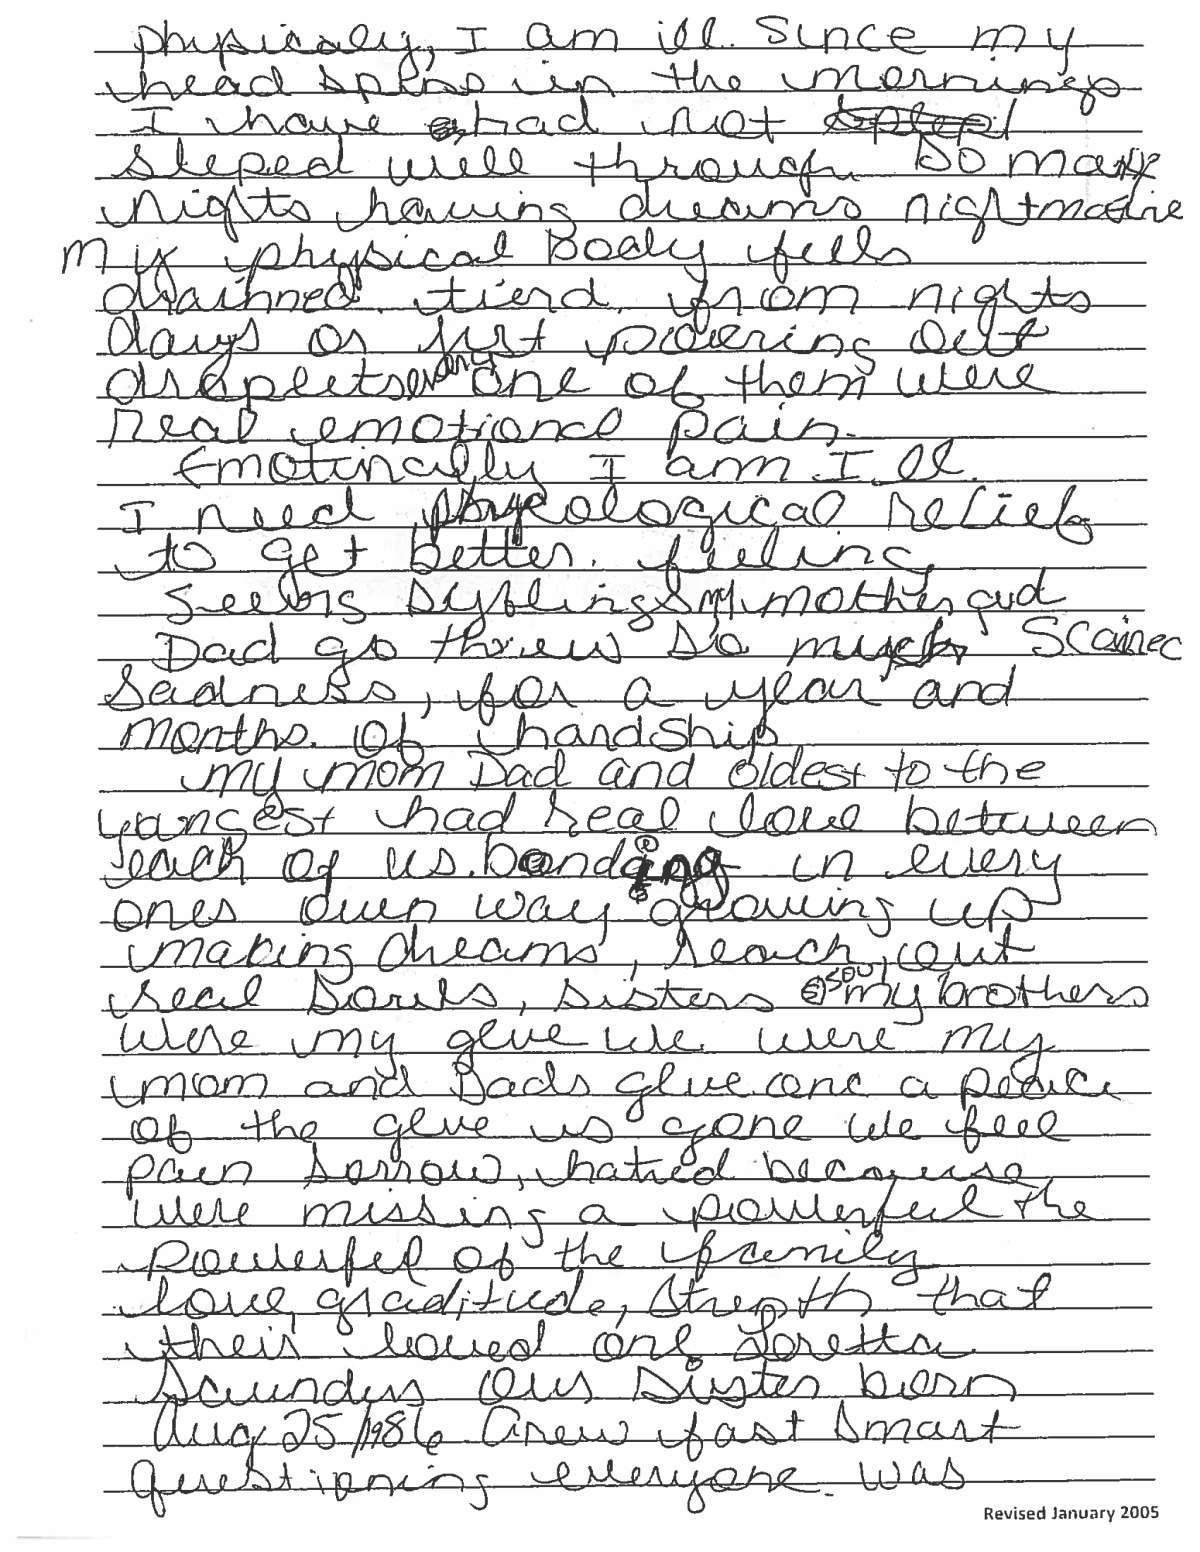 physicaly, I am ill. Since my
head spins in the mornings
I have had not
sleped well through. So many
nights having dreams nightmare
My physical Body fells
drainned. tierd, from nights
days or just povering out
dropletts every one of them were
real emotional pain.
Emotinally I am Ill.
I need phycological relief
to get better. feeling
seeing syblings my mother and
Dad go threw so much Scarred
Sadness, for a year and
months. of hardship
my mom Dad and oldest to the
yangest had real love between
each of us. bonding in every
ones own way growing up
making dreams, reach, out
real souls, sisters soul my brothers
were my glue we were my
mom and Dads glue. one a peace
of the glue is gone we feel
pain sorrow, hatred because
were missing a powerful the
powerful of the family
love, graditude, strepth that
their loved one Loretta
Saunders Our sister born
Aug 25/1986 Grew fast smart
questioning everyone. was
Revised January 2005